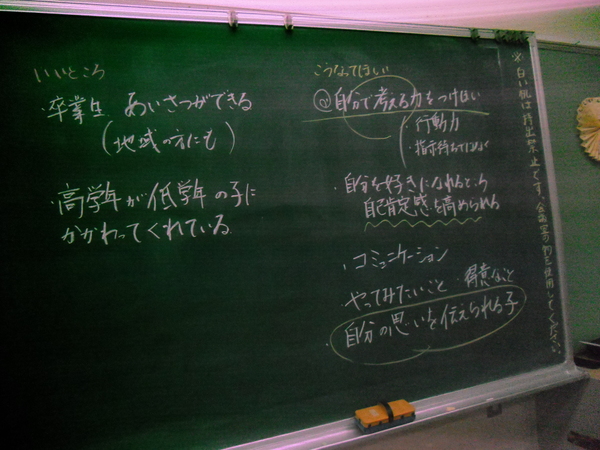 いいところ
・卒業生 あいさつができる
(地域の方にも)
・高学年が低学年の子に
かかわってくれている
こうなってほしい
◎自分で考える力をつけてほしい
・行動力
・指示待ちではなく
・自分を好きになれるところ
自己肯定感を高められる
・コミュニケーション
・やってみたいこと 得意なこと
・自分の思いを伝えられる子
※白い机は持出禁止です。
使用してください。